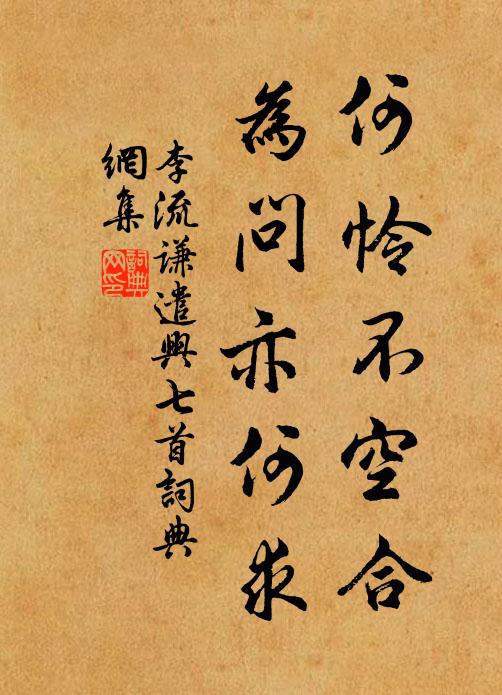 何怜不空合
為問亦何求
李流謙遣興七首詞典
網集
詞典網印